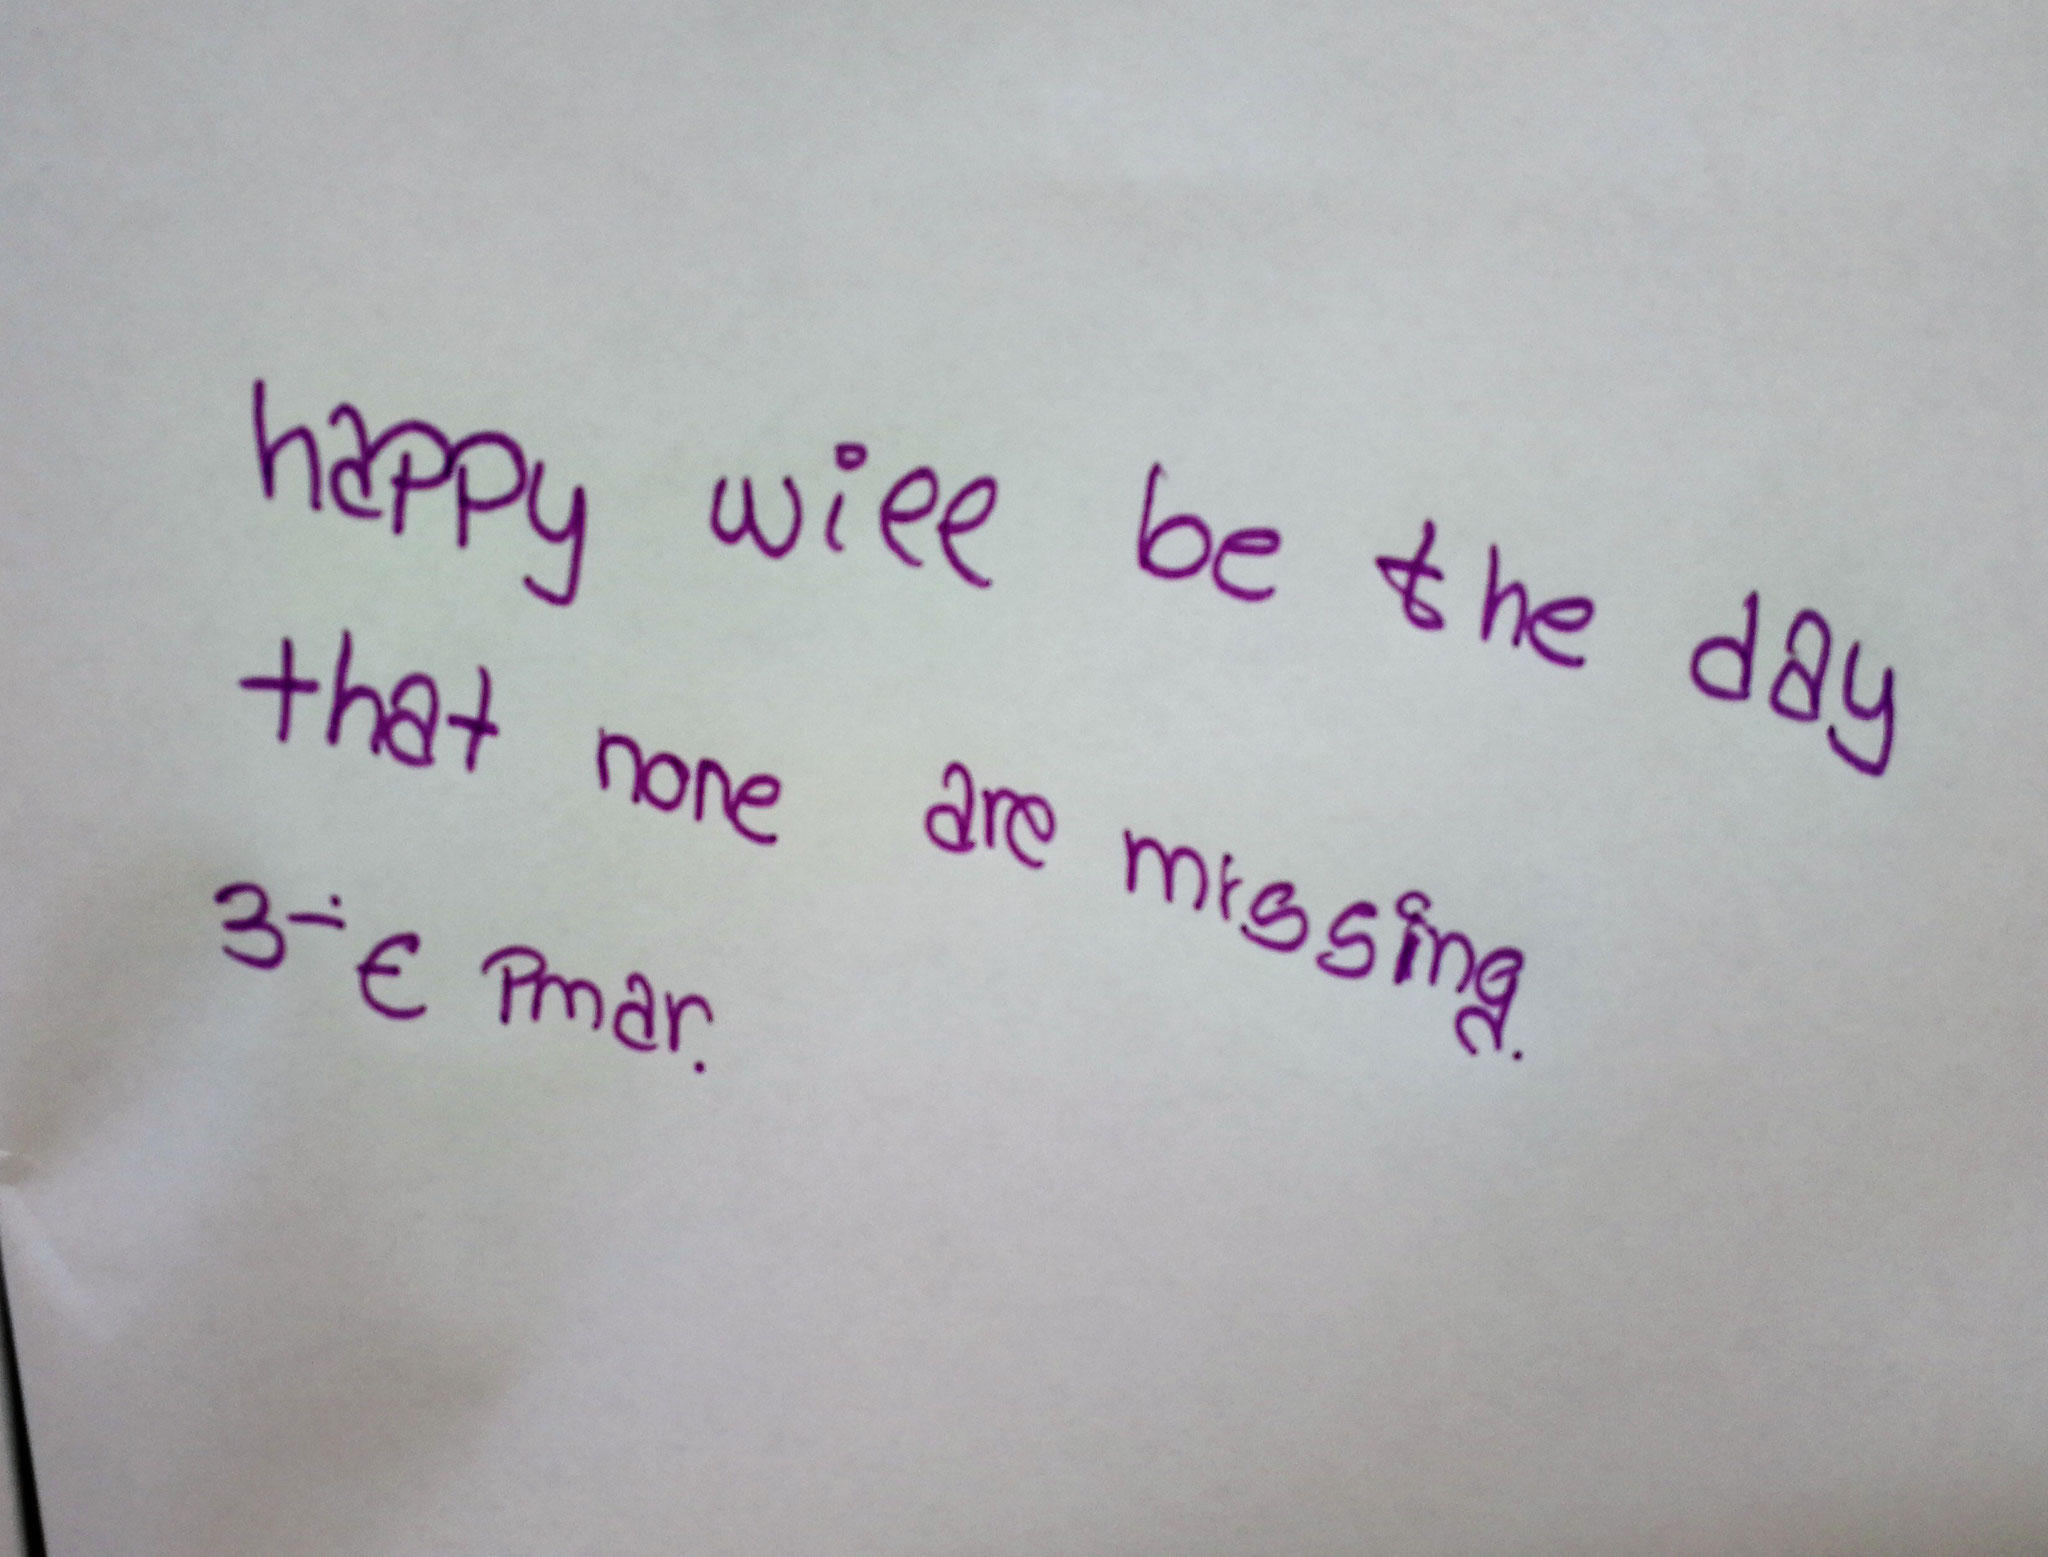 happy will be the day
that none are missing.
3-€ Pmar.